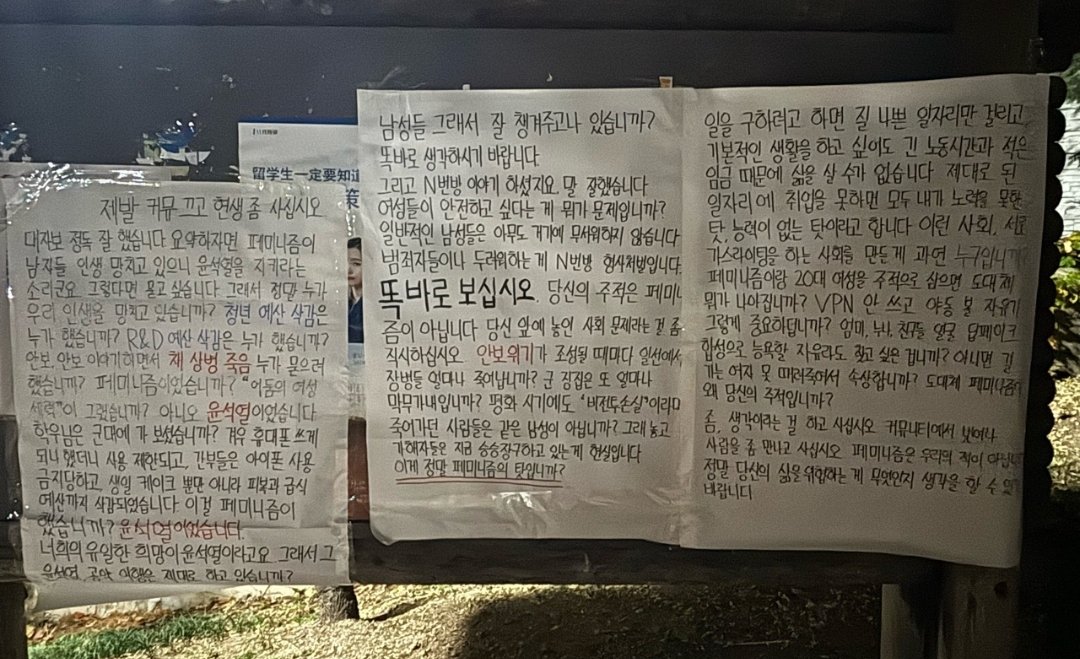 제발 커뮤 끄고 현생 좀 사십시오
대자보 정독 잘 했습니다 요약하자면 페미니즘이
남자들 인생 망치고 있으니 윤석열을 지키라는
소리군요. 그렇다면 묻고 싶습니다. 그래서 정말 누가
우리 인생을 망치고 있습니까? 청년 예산 삭감은
누가 했습니까? R&D 예산 삭감은 누가 했습니까?
안보, 안보 이야기하면서 채 상병 죽음 누가 묻으려
했습니까? 페미니즘이었습니까? "어둠의 여성
세력"이 그랬습니까? 아니오 윤석열이었습니다
학우님은 군대에 가 보셨습니까? 겨우 휴대폰 쓰게
되나 했더니 사용 제한되고, 간부들은 아이폰 사용
금지당하고, 생일 케이크 뿐만 아니라 피복과 급식
예산까지 삭감되었습니다. 이걸 페미니즘이
했습니까? 윤석열이었습니다.
너희의 유일한 희망이 윤석열이라고요. 그래서 그
윤석열, 공약 이행은 제대로 하고 있습니까?
留学生一定要知道
策
남성들 그래서 잘 챙겨주고나 있습니까?
똑바로 생각하시기 바랍니다
그리고 N번방 이야기 하셨지요. 말 잘했습니다
여성들이 안전하고 싶다는 게 뭐가 문제입니까?
일반적인 남성들은 아무도 거기에 무서워하지 않습니다
범죄자들이나 두려워하는 게 N번방 형사처벌입니다.
똑바로 보십시오. 당신의 주적은 페미니
즘이 아닙니다 당신 앞에 놓인 사회 문제라는 걸 좀
직시하십시오. 안보위기가 조성될 때마다 일선에서
장병들 얼마나 죽어납니까? 군 징집은 또 얼마나
막무가내입니까? 평화 시기에도 "비전투손실"이라며
죽어가던 사람들은 같은 남성이 아닙니까? 그래 놓고
가해자들은 지금 승승장구하고 있는 게 현실입니다
이게 정말 페미니즘의 탓입니까?
일을 구하려고 하면 질 나쁜 일자리만 걸리고,
기본적인 생활을 하고 싶어도 긴 노동시간과 적은
임금 때문에 삶을 살 수가 없습니다 제대로 된
일자리에 취업을 못하면 모두 내가 노력을 못한
탓, 능력이 없는 탓이라고 합니다 이런 사회, 서로
가스라이팅을 하는 사회를 만든게 과연 누구입니까
페미니즘이랑 20대 여성을 주적으로 삼으면 도대체
뭐가 나아집니까? VPN 안 쓰고 야동 볼 자유가
그렇게 중요하답니까? 엄마, 누나, 친구들 얼굴 딥페이크
합성으로 능욕할 자유라도 찾고 싶은 겁니까? 아니면 길
가는 여자 못 때려죽여서 속상합니까? 도대체 페미니즘이
왜 당신의 주적입니까?
좀, 생각이라는 걸 하고 사십시오 커뮤니티에서 벗어나
사람을 좀 만나고 사십시오 페미니즘은 우리의 적이 아닙니다
정말 당신의 삶을 위협하는 게 무엇인지 생각을 할 수 있
바랍니다